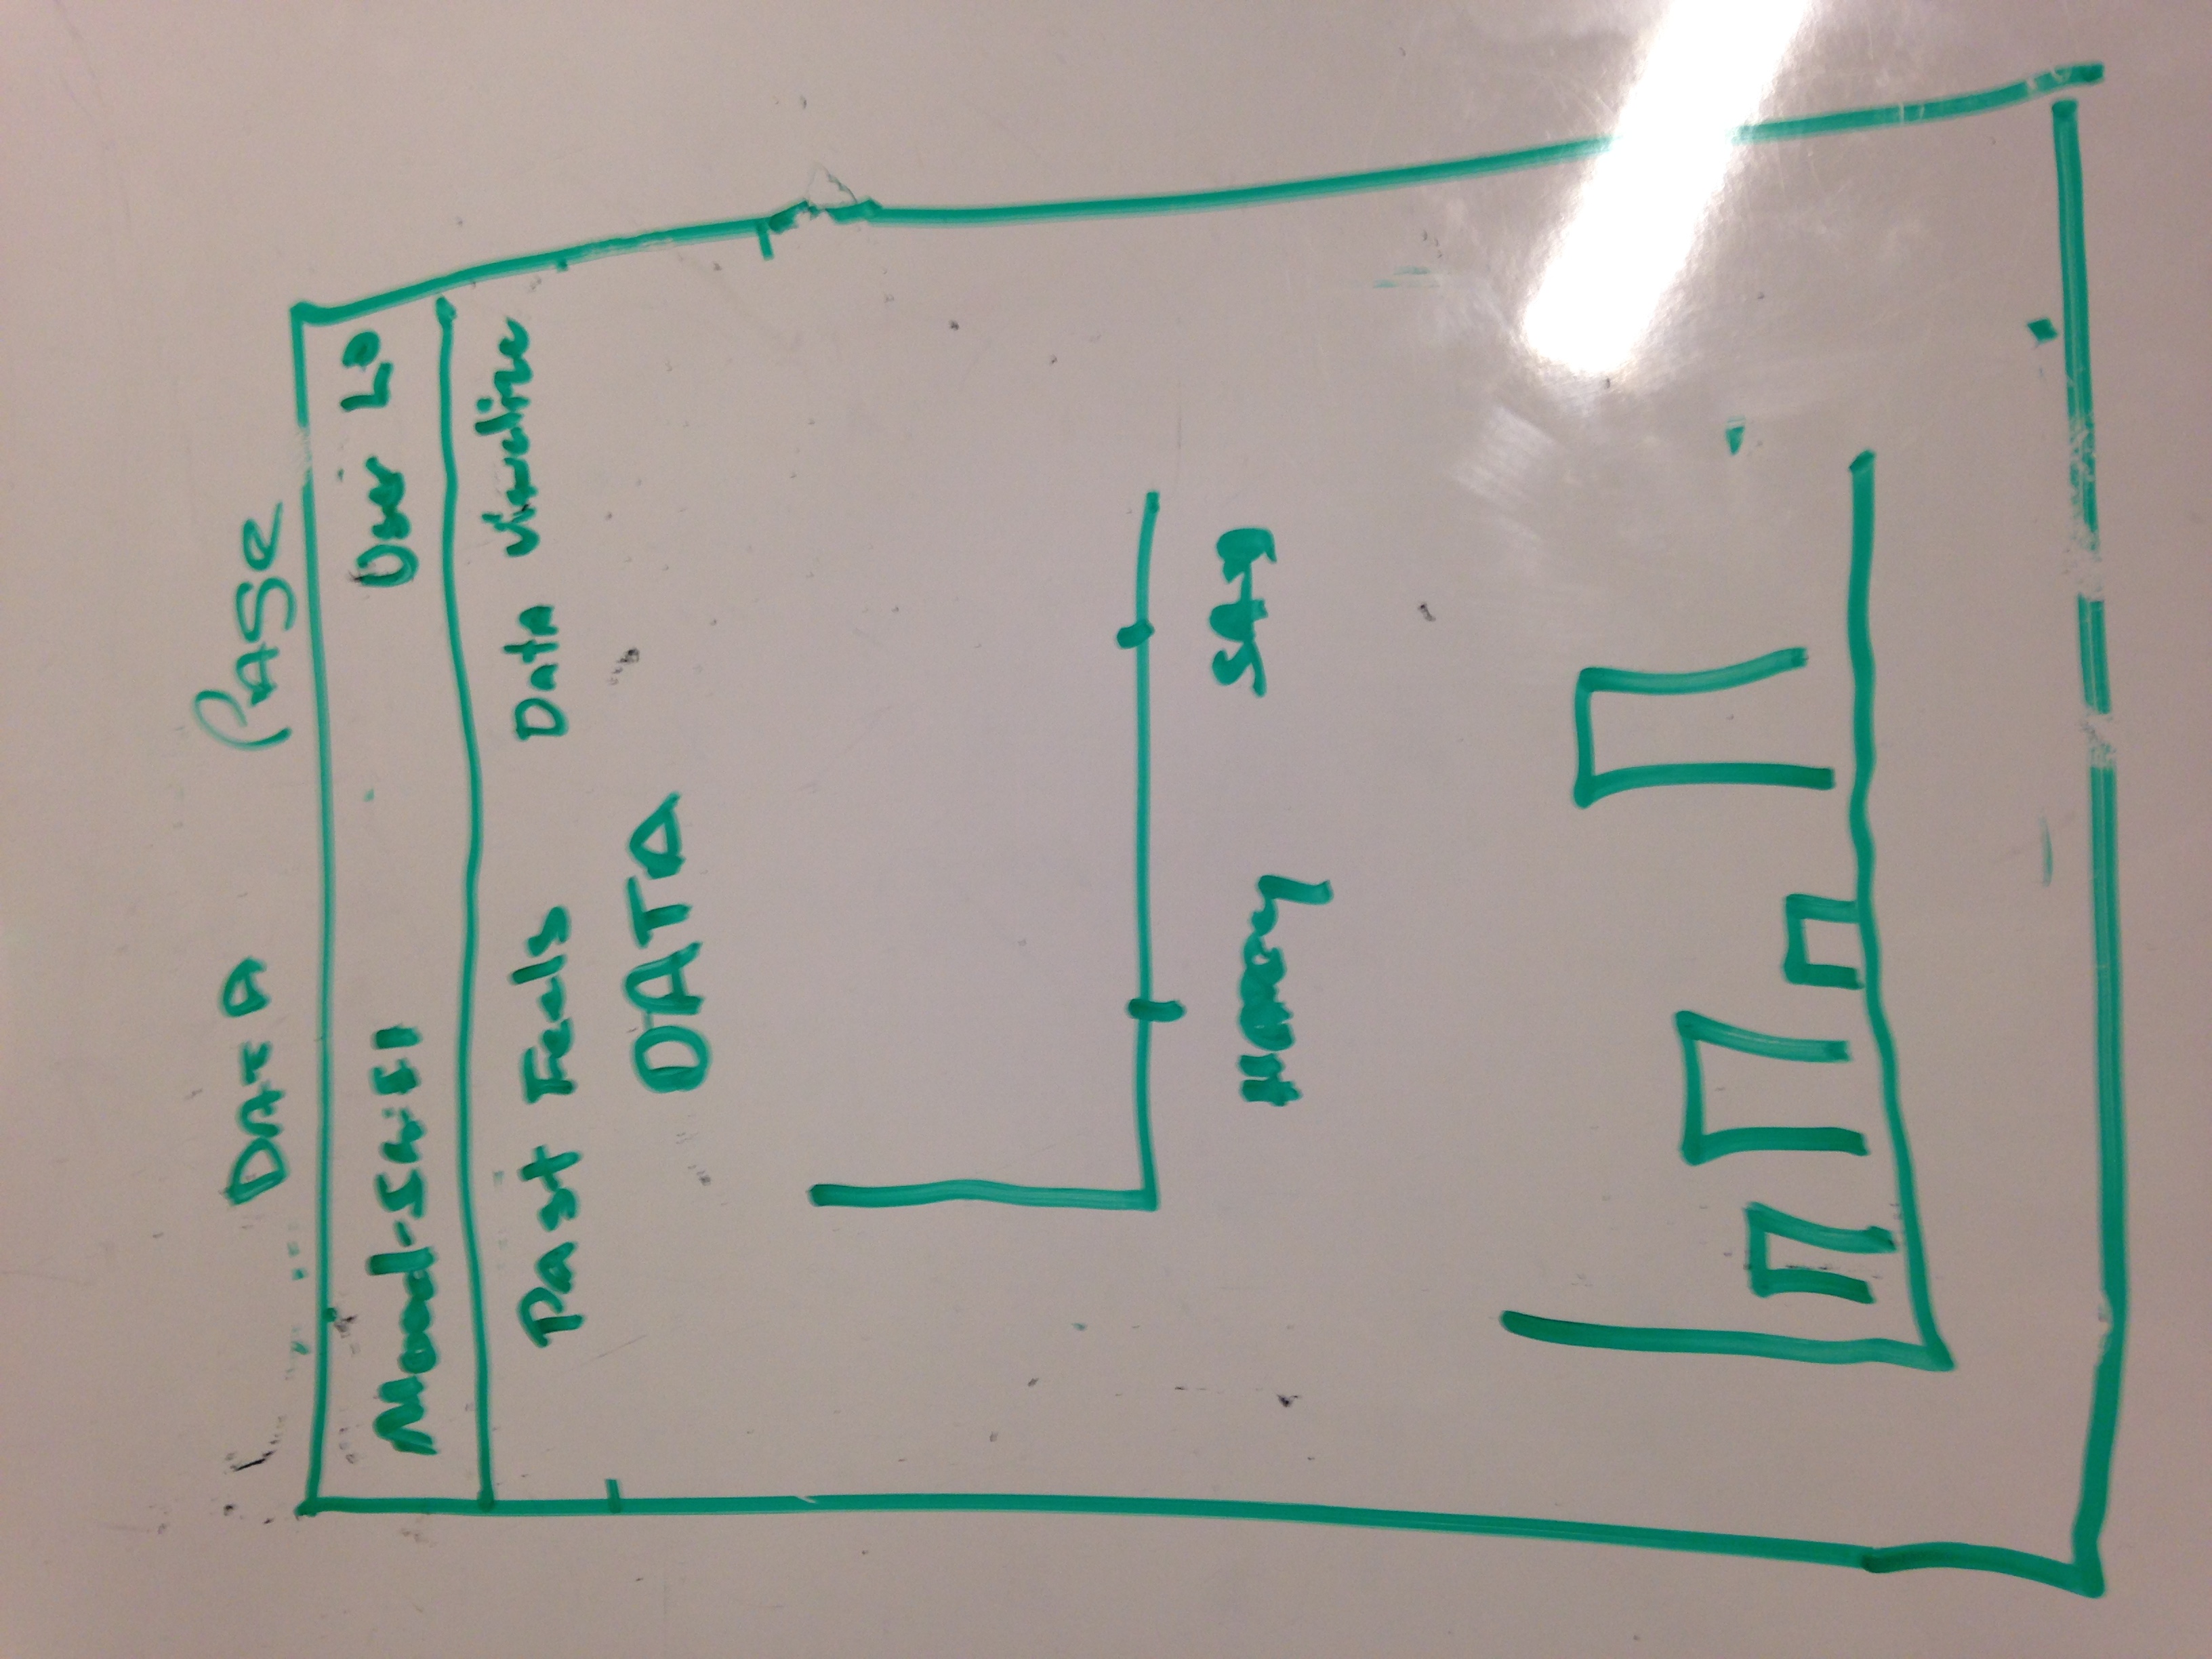 DATA PAGE
User LO
Past Feels Data Visualize
DATA
HAPPY SAD